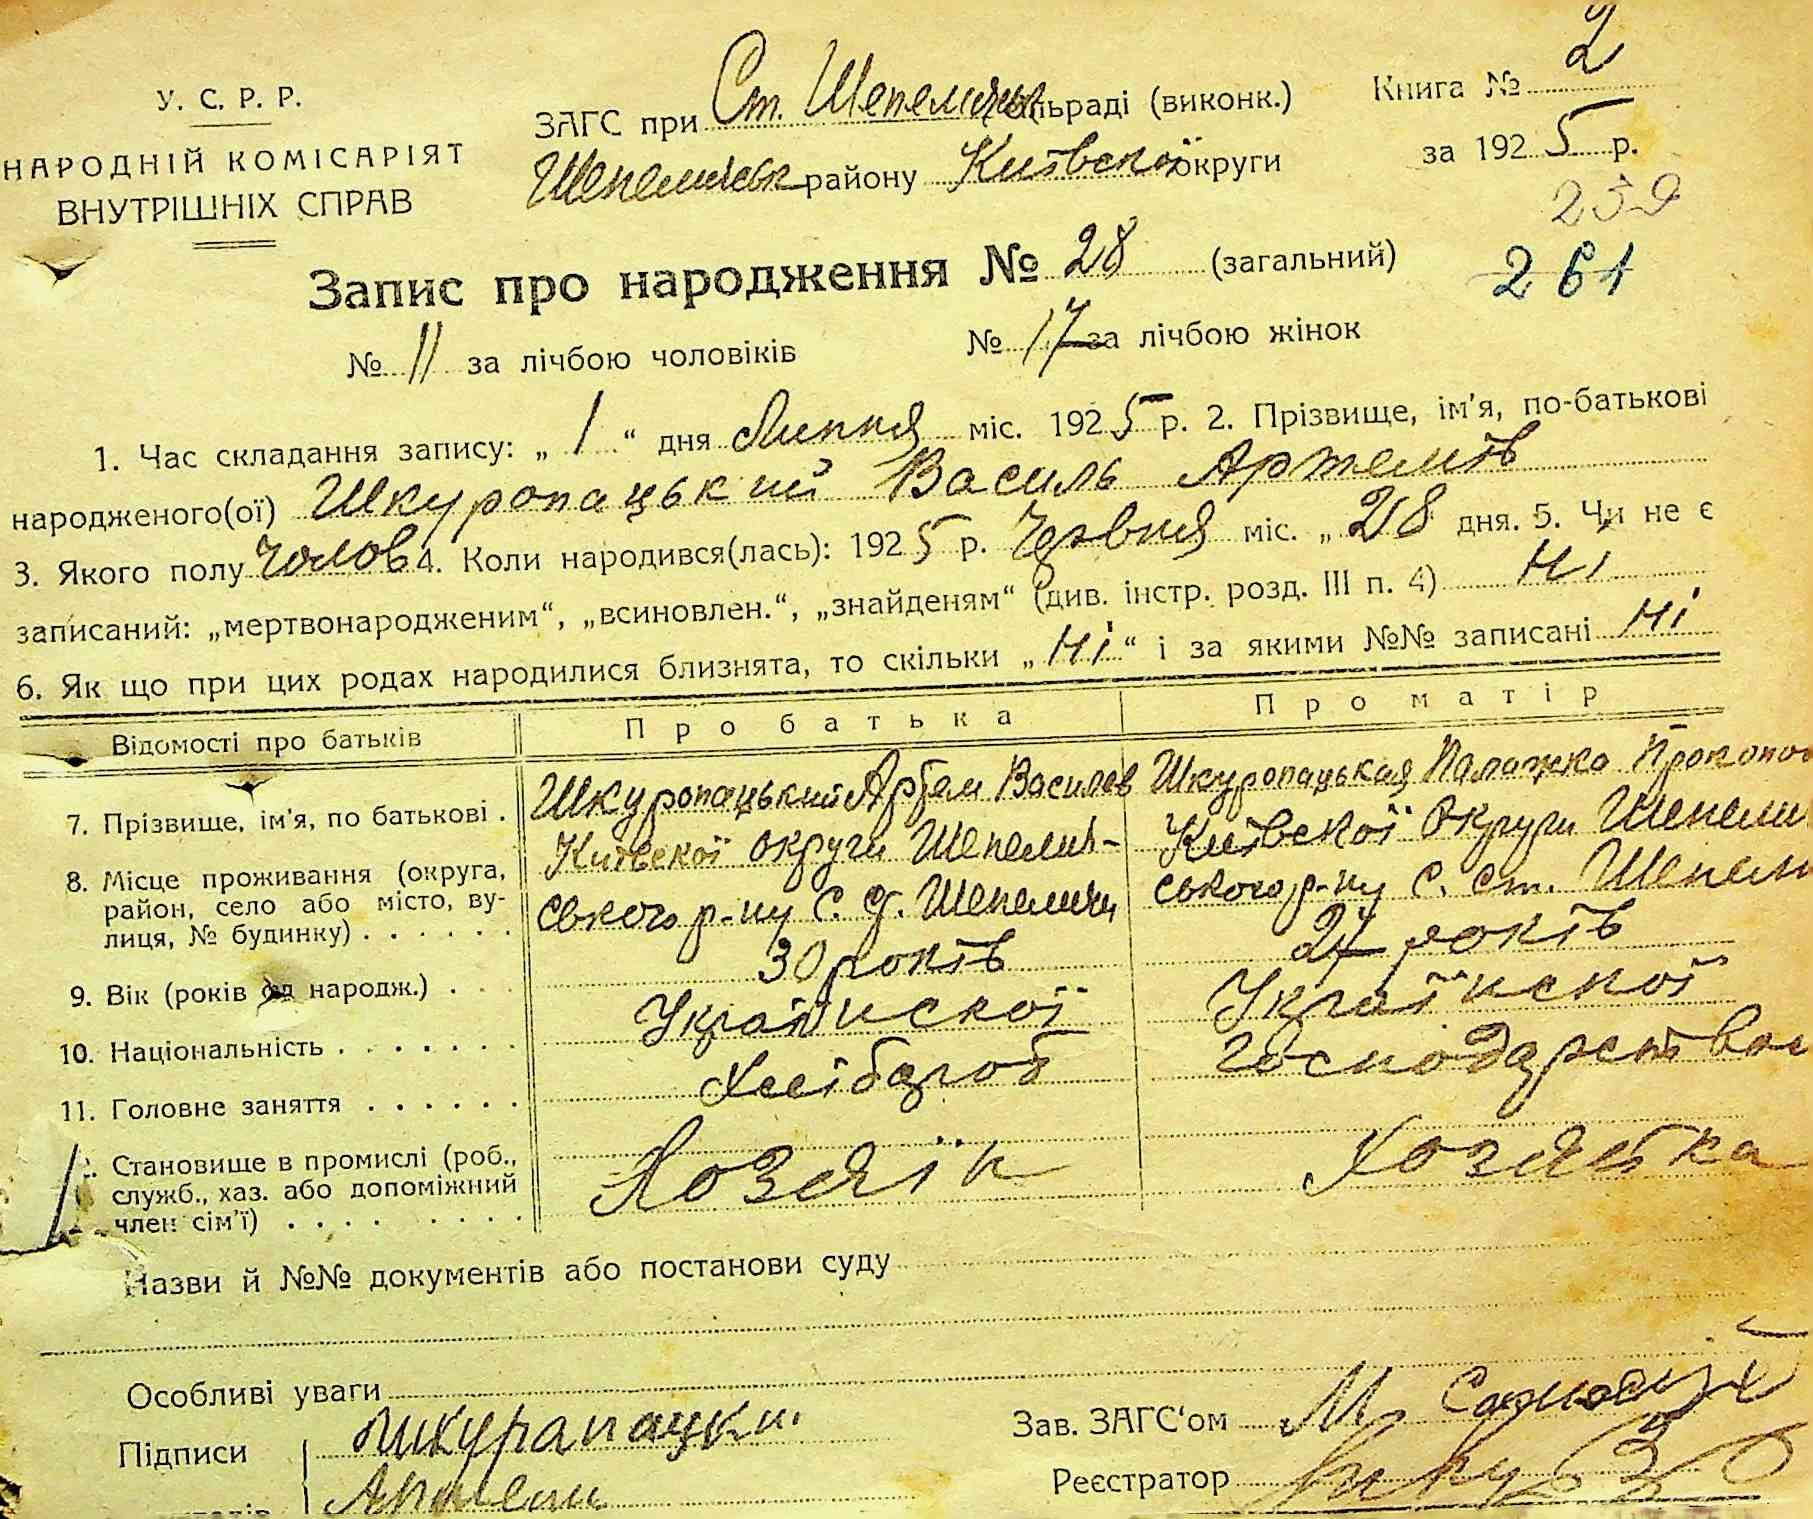 У. С. Р. Р.
НАРОДНІЙ КОМІСАРІЯТ
ВНУТРІШНІХ СПРАВ
ЗАГС при Ст. Шепелицькій сільраді (виконк.)
Шепелицьк району Київскої округи
Книга № 2
за 1925 р.
259
261
Запис про народження № 28 (загальний)
№ 11 за лічбою чоловіків № 17 за лічбою жінок
1. Час складання запису: „ 1 “ дня Липня міс. 1925 р. 2. Прізвище, ім'я, по-батькові
народженого(ої) Шкуропацький Василь Артемів
3. Якого полу Чолов 4. Коли народився(лась): 1925 р. Червня міс. „ 28 дня. 5. Чи не є
записаний: „мертвонародженим“, „всиновлен.“, „знайденям“ (див. інстр. розд. III п. 4) Ні
6. Як що при цих родах народилися близнята, то скільки „ Ні “ і за якими №№ записані Ні
Відомості про батьків Про батька Про матір
7. Прізвище, ім'я, по батькові . Шкуропацький Артем Василев Шкуропацькая Палажка Прокопов
8. Місце проживання (округа, район, село або місто, вулиця, № будинку) . . . . . . Київскої округи Шепелиц- Київскої Округи Шепели
ського р-ну с. ст. Шепеличи ського р-ну с. ст. Шепели
9. Вік (років од народж.) . . . 30 років 27 років
10. Національність . . . . . . . Українскої Українскої
11. Головне заняття . . . . . . Хлібороб Господарством
Становище в промислі (роб., служб., хаз. або допоміжний член сім'ї) . . . . . . . . Хозяїн Хозяєка
Назви й №№ документів або постанови суду
Особливі уваги
Підписи Шкурапацки
Артем
Зав. ЗАГС'ом М.
Реєстратор